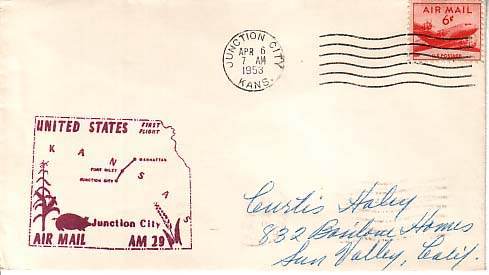 JUNCTION CITY
APR 6
7 AM
1953
KANS.
AIR MAIL
6¢
U.S. POSTAGE
UNITED STATES
FIRST FLIGHT
KANSAS
MANHATTAN
FORT RILEY
JUNCTION CITY
Junction City
AIR MAIL AM 29
Curtis Haley
832 Homes
Sun Valley, Calif.